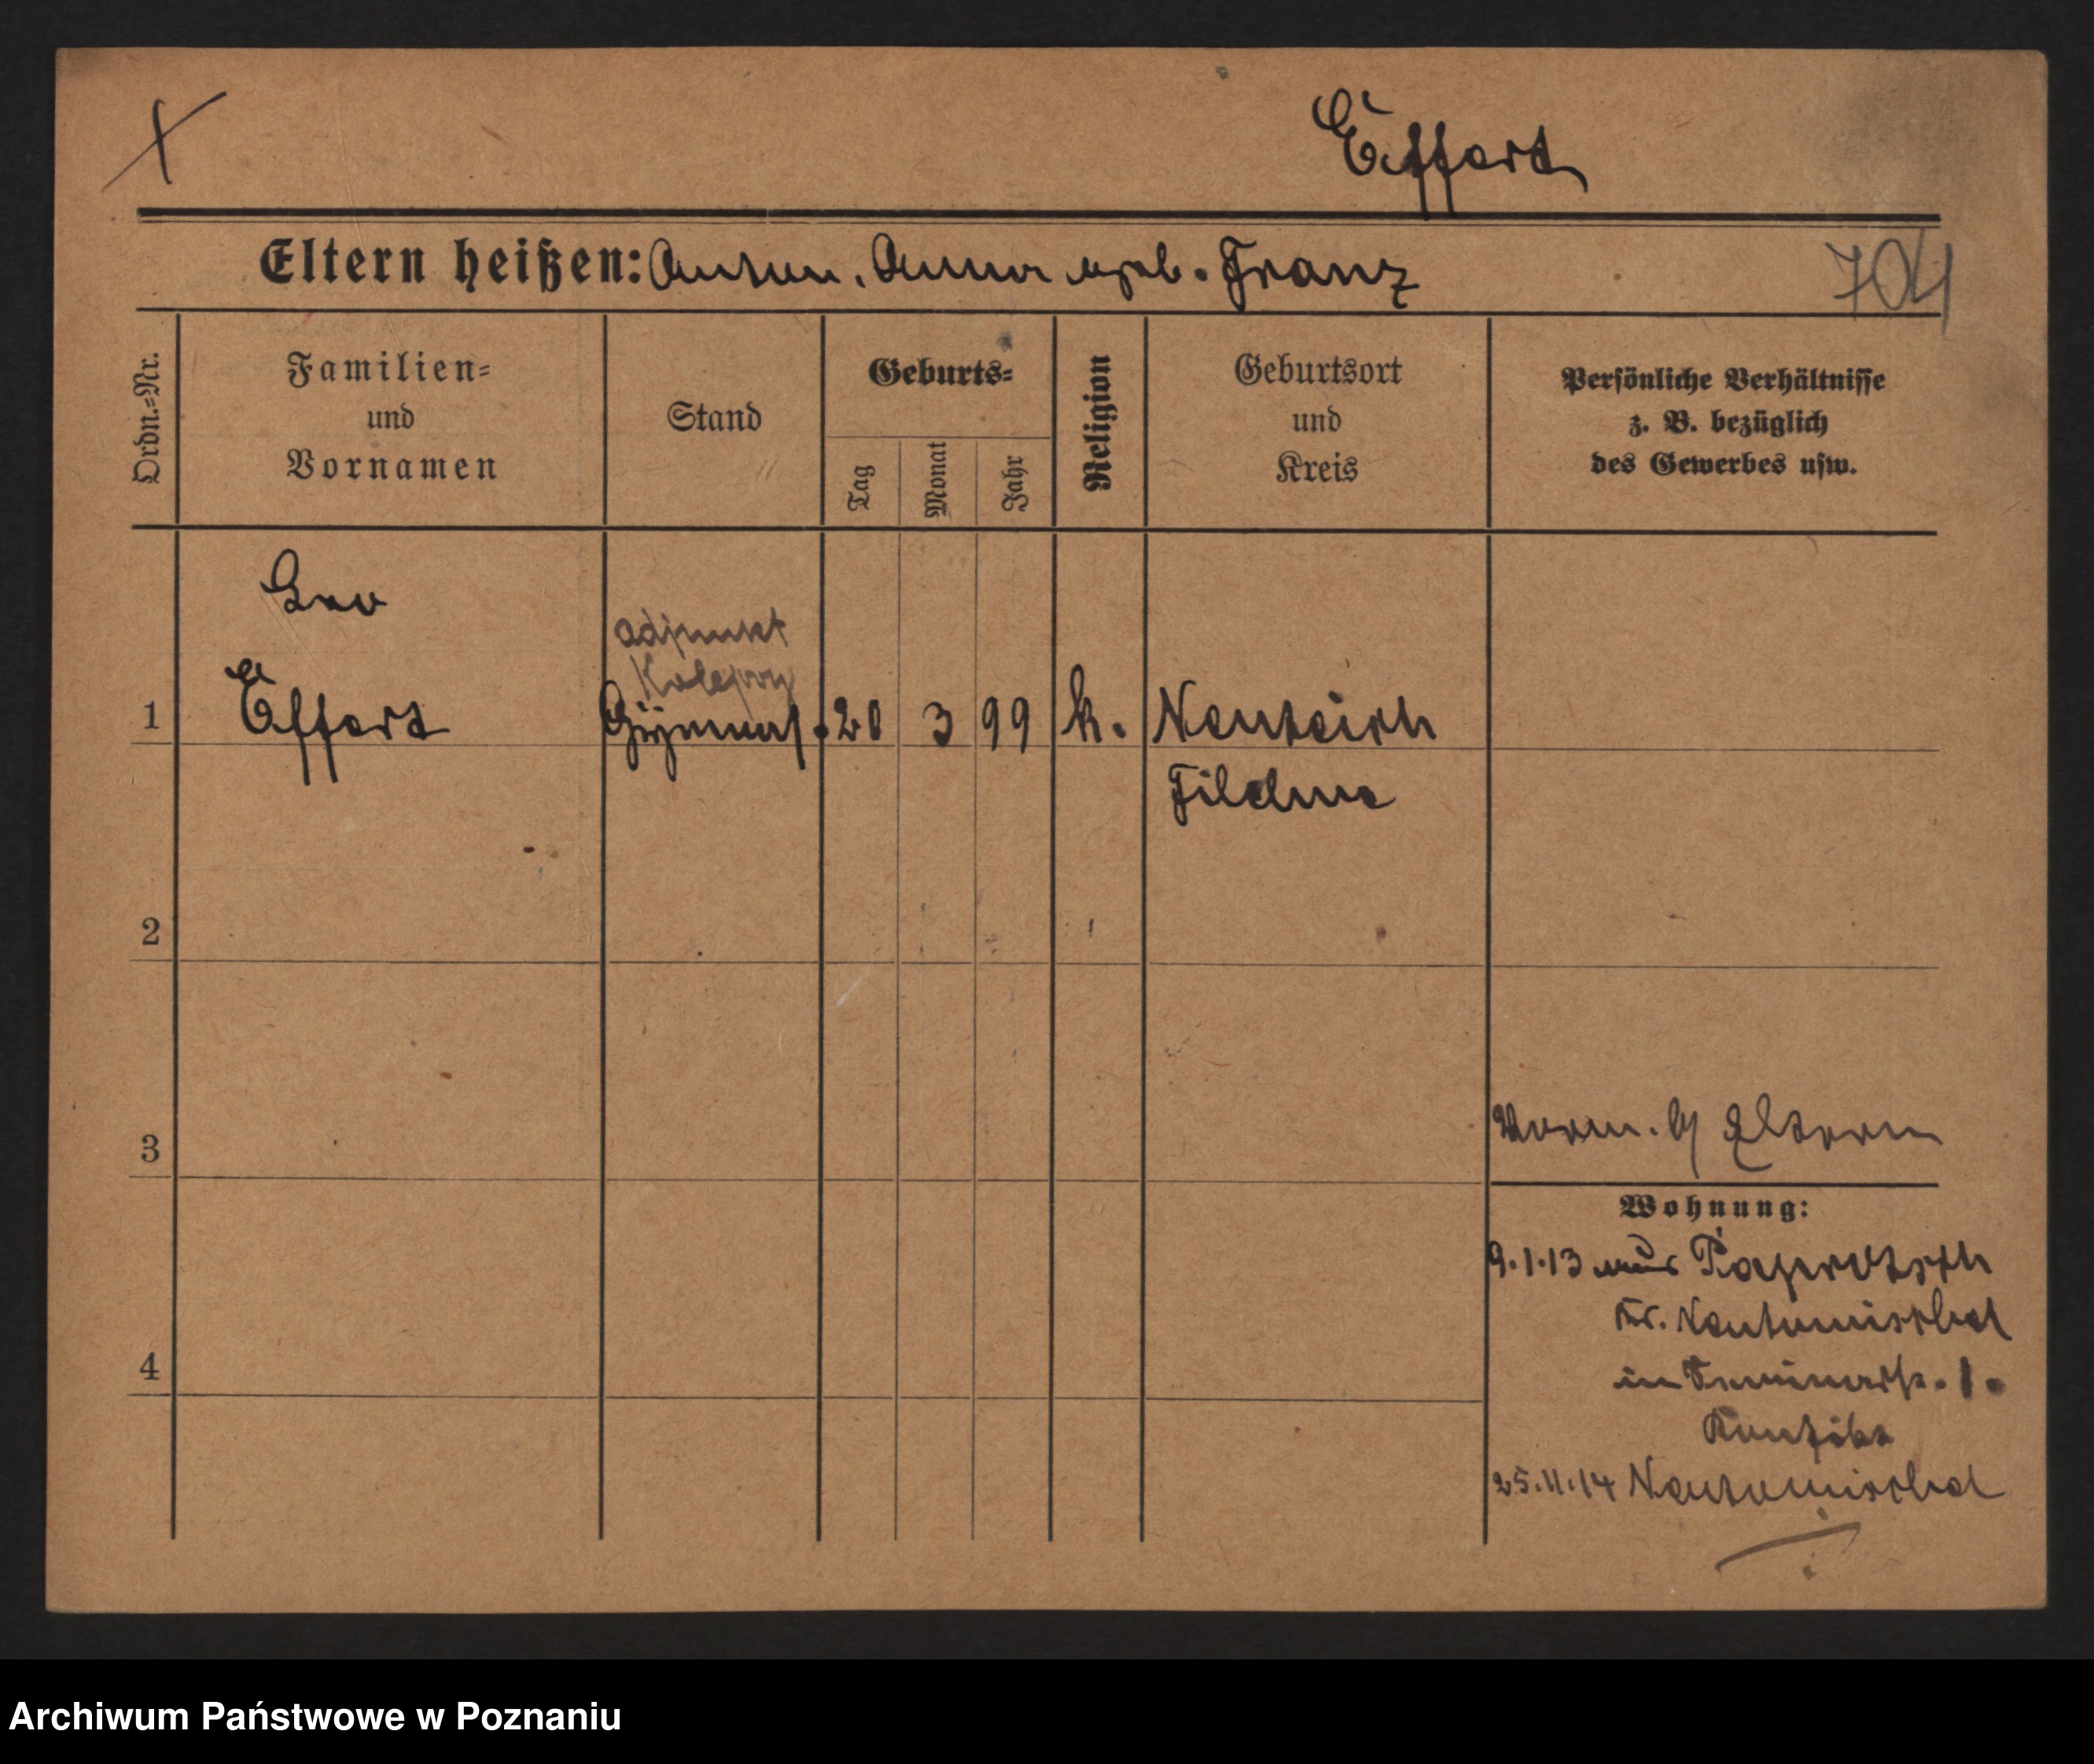 Effert
Eltern heißen: Anton, Anna geb. Franz
704
Ordn.=Nr.
Familien=
und
Vornamen
Stand
Geburts=
Tag
Monat
Jahr
Religion
Geburtsort
und
Kreis
Persönliche Verhältnisse
z. B. bezüglich
des Gewerbes usw.
Leo
adjunkt
1 Effert Gymnas. 20 3 99 k. Neuteich
Filehne
2
3
Eltern
Wohnung:
9.1.13 aus Paprotsch
Kr. Neutomischel
in Seminarstr. 1.
25.11.14 Neutomischel
4
Archiwum Państwowe w Poznaniu